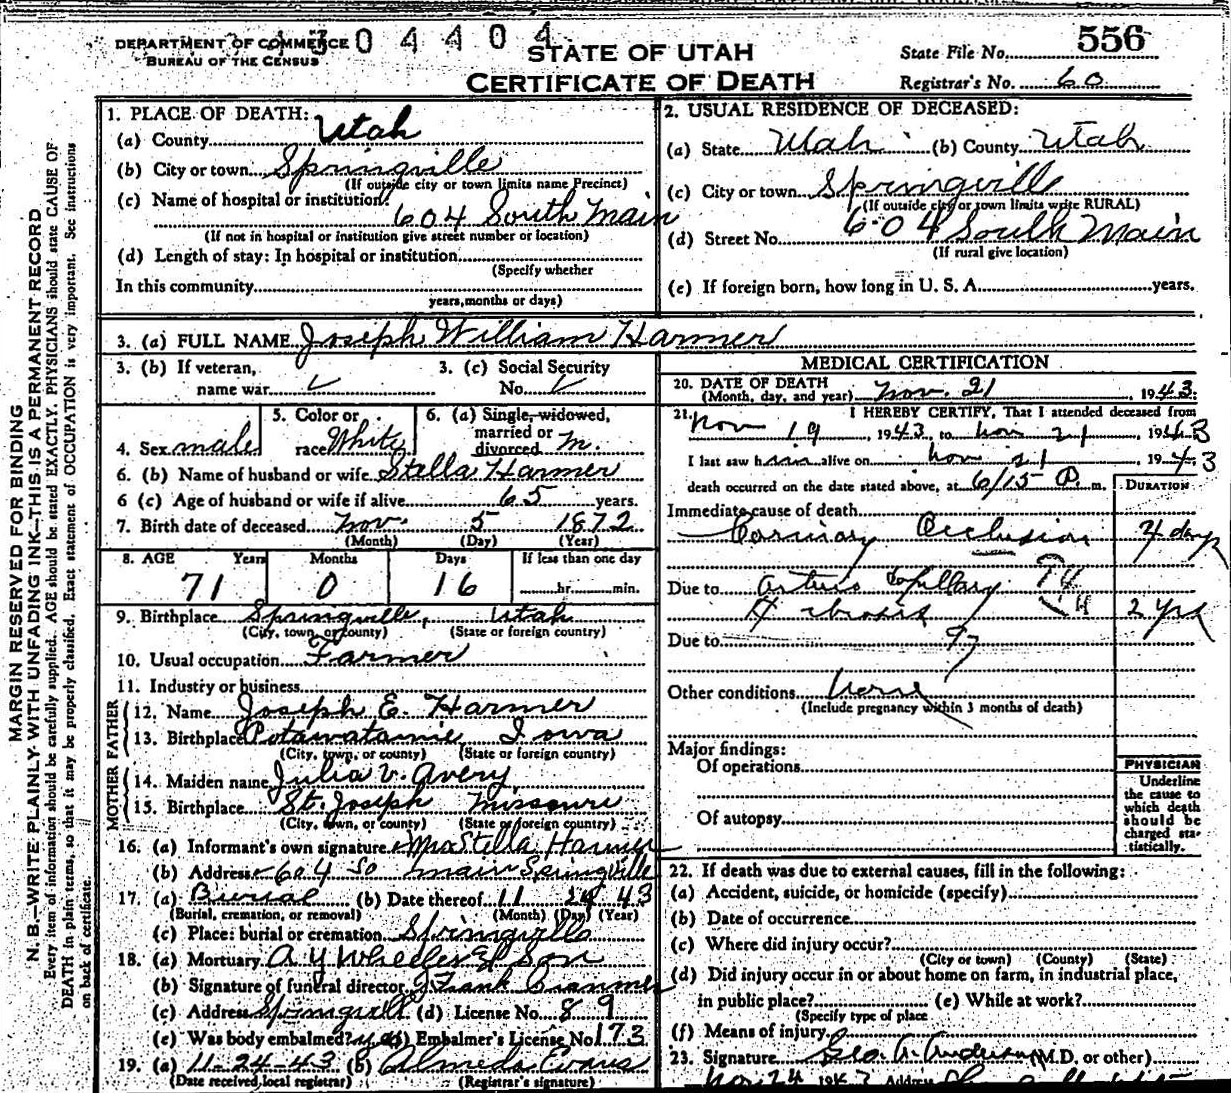 DEPARTMENT OF COMMERCE
BUREAU OF THE CENSUS
304404
STATE OF UTAH
CERTIFICATE OF DEATH
State File No. 556
Registrar's No. 60
MARGIN RESERVED FOR BINDING
N. B.—WRITE PLAINLY WITH UNFADING INK—THIS IS A PERMANENT RECORD
Every item of information should be carefully supplied. AGE should be stated EXACTLY. PHYSICIANS should state CAUSE OF
DEATH in plain terms, so that it may be properly classified. Exact statement of OCCUPATION is very important. See instructions
on back of certificate.
1. PLACE OF DEATH:
(a) County Utah
(b) City or town Springville
(If outside city or town limits name Precinct)
(c) Name of hospital or institution:
604 South Main
(If not in hospital or institution give street number or location)
(d) Length of stay: In hospital or institution
(Specify whether
In this community
years, months or days)
2. USUAL RESIDENCE OF DECEASED:
(a) State Utah (b) County Utah
(c) City or town Springville
(If outside city or town limits write RURAL)
(d) Street No. 604 South Main
(If rural give location)
(e) If foreign born, how long in U. S. A. years.
3. (a) FULL NAME Joseph William Harmer
3. (b) If veteran, name war
3. (c) Social Security No.
4. Sex male
5. Color or race White
6. (a) Single, widowed, married or divorced M.
6. (b) Name of husband or wife Stella Harmer
6 (c) Age of husband or wife if alive 65 years.
7. Birth date of deceased Nov. 5 1872
(Month) (Day) (Year)
8. AGE Years Months Days If less than one day
71 0 16 hr. min.
9. Birthplace Springville, Utah
(City, town, or county) (State or foreign country)
10. Usual occupation Farmer
11. Industry or business
FATHER
12. Name Joseph E. Harmer
13. Birthplace Potawatamie Iowa
(City, town, or county) (State or foreign country)
MOTHER
14. Maiden name Julia V. Avery
15. Birthplace St. Joseph Missouri
(City, town, or county) (State or foreign country)
16. (a) Informant's own signature Mrs Stella Harmer
(b) Address 604 So Main Springville
17. (a) Burial (b) Date thereof 11 24 43
(Burial, cremation, or removal) (Month) (Day) (Year)
(c) Place: burial or cremation Springville
18. (a) Mortuary A Y Wheeler & Son
(b) Signature of funeral director Frank
(c) Address Springville (d) License No. 89
(e) Was body embalmed? yes (f) Embalmer's License No. 173
19. (a) 11-24-43 (b) Almeda Evans
(Date received local registrar) (Registrar's signature)
MEDICAL CERTIFICATION
20. DATE OF DEATH
(Month, day, and year) Nov. 21, 1943.
21. I HEREBY CERTIFY, That I attended deceased from
Nov 19, 1943, to Nov 21, 1943
I last saw him alive on Nov 21 1943
death occurred on the date stated above, at 6/15 P. m.
DURATION
Immediate cause of death
Occlusion 4 days
Due to Capillary
2 yrs
Due to
97
Other conditions None
(Include pregnancy within 3 months of death)
Major findings:
Of operations
Of autopsy
PHYSICIAN
Underline
the cause to
which death
should be
charged sta-
tistically.
22. If death was due to external causes, fill in the following:
(a) Accident, suicide, or homicide (specify)
(b) Date of occurrence
(c) Where did injury occur?
(City or town) (County) (State)
(d) Did injury occur in or about home on farm, in industrial place,
in public place? (e) While at work?
(Specify type of place
(f) Means of injury
23. Signature Geo. A. Anderson (M.D. or other)
Nov 24 1943 Address